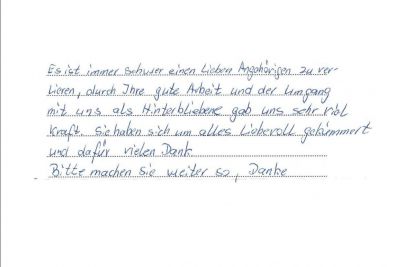 Es ist immer schwer einen Lieben Angehörigen zu ver-
lieren, durch Ihre gute Arbeit und der Umgang
mit uns als Hinterbliebene gab uns sehr viel
Kraft. Sie haben sich um alles Liebevoll gekümmert
und dafür vielen Dank
Bitte machen sie weiter so, Danke